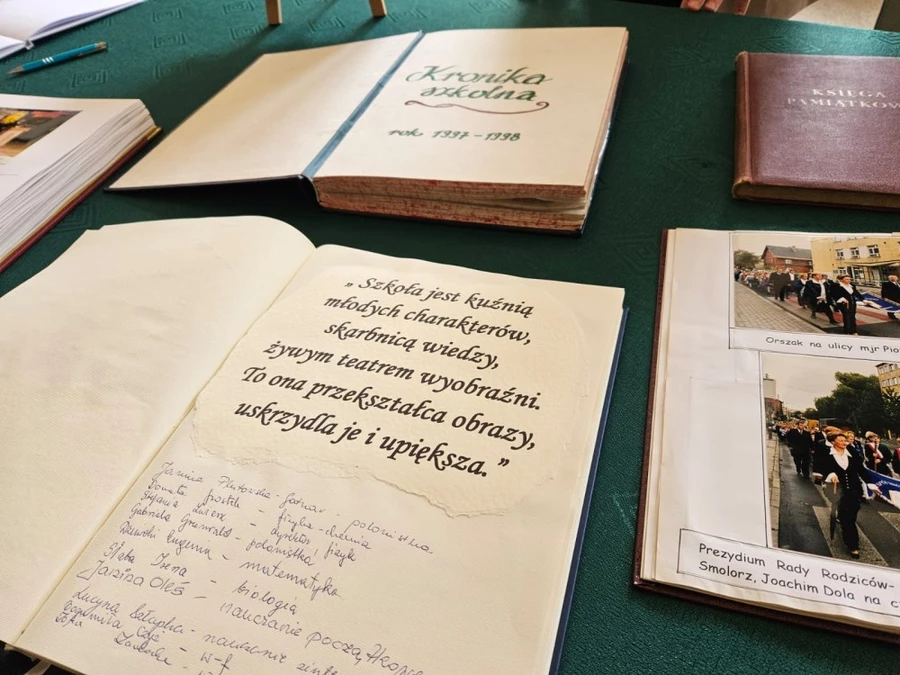 Kronika
szkolna
rok 1997-1998
KSIĘGA
PAMIĄTKOW
„Szkoła jest kuźnią
młodych charakterów,
skarbnicą wiedzy,
żywym teatrem wyobraźni.
To ona przekształca obrazy,
uskrzydla je i upiększa.”
Janina - polonistka
Donata - fizyka-chemia
Stefania - dyrektor, fizyk
Gabriela - polonistka
Eugenia - matematyka
Irena - biologia
Janina Oleś - nauczanie
Lucyna - nauczanie
w-f
Orszak na ulicy mjr Pio
Prezydium Rady Rodziców-
Smolorz, Joachim Dola na c